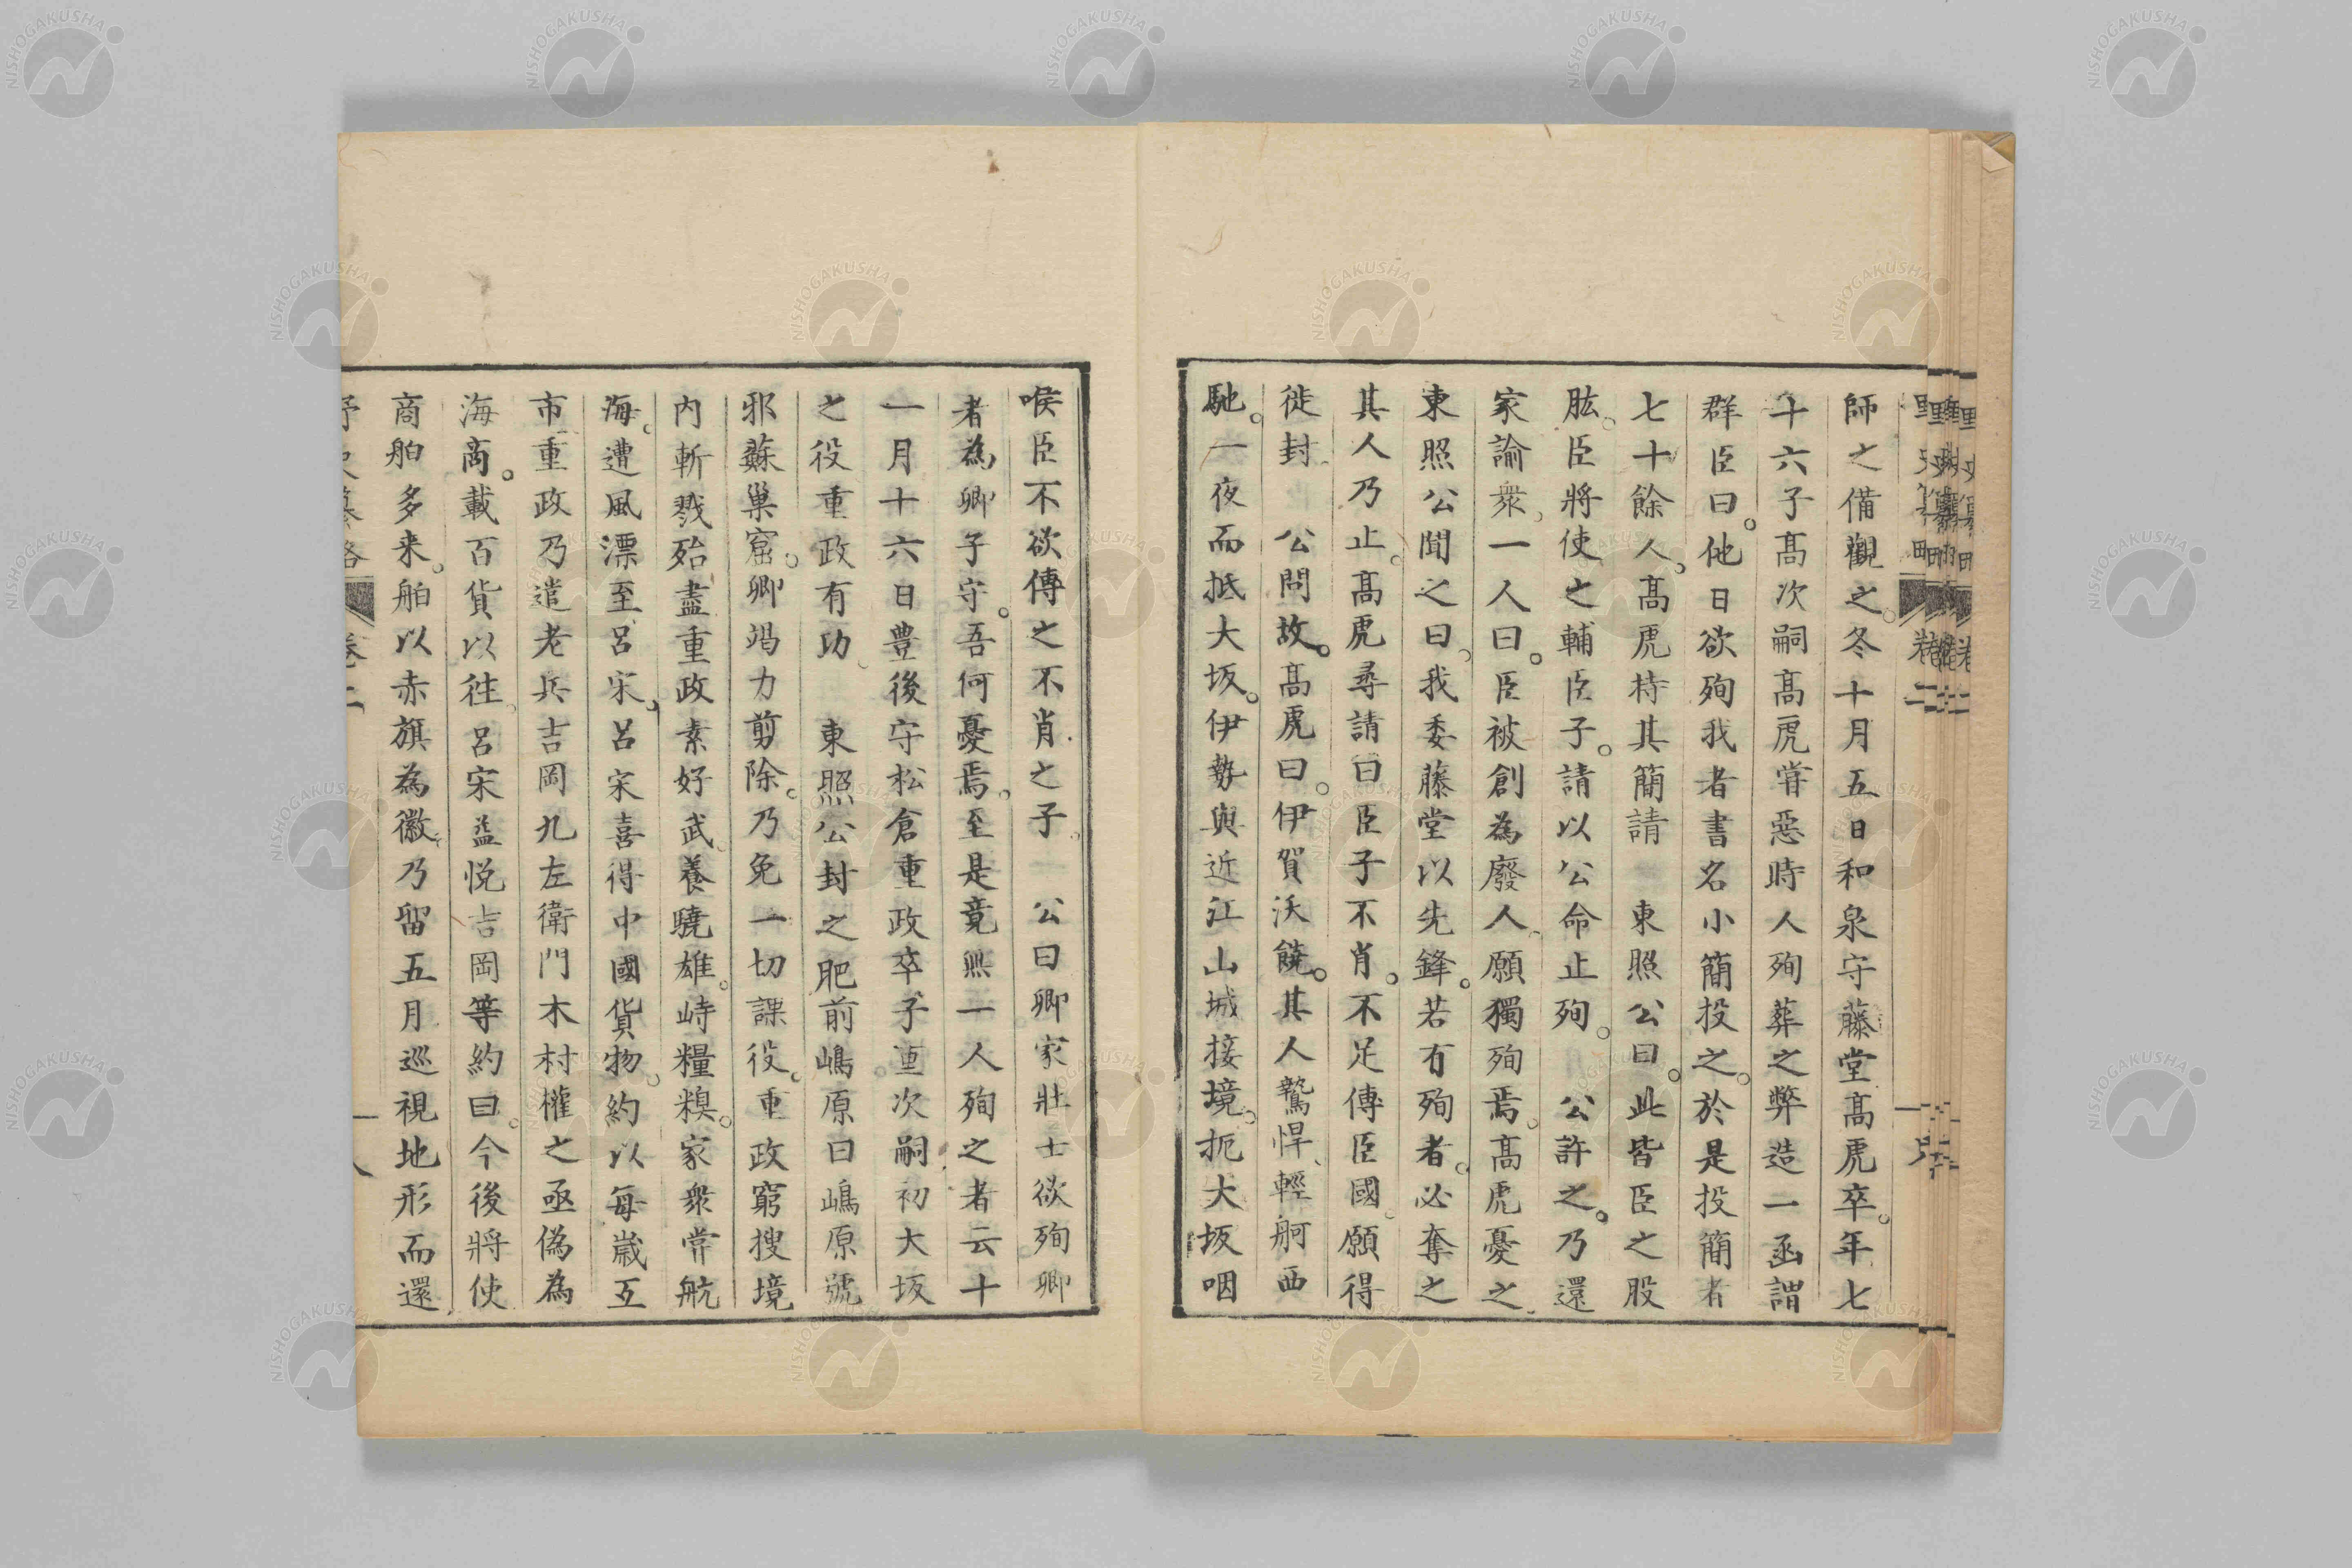 師之備觀之。冬十月五日和泉守藤堂高虎卒。年七
十六子高次嗣高虎嘗惡時人殉葬之弊造一函謂
群臣曰。他日欲殉我者書名小簡投之。於是投簡者
七十餘人。高虎持其簡請　東照公曰。此皆臣之股
肱。臣將使之輔臣子。請以公命止殉。　公許之。乃還
家諭衆。一人曰。臣被創為廢人。願獨殉焉。高虎憂之。
東照公聞之曰。我委藤堂以先鋒。若有殉者。必奪之
其人乃止。高虎尋請曰臣子不肖。不足傳臣國。願得
徙封。　公問故。高虎曰。伊賀沃饒。其人鷙悍、輕舸西
馳。一夜而抵大坂。伊勢與近江山城接境。扼大坂咽
喉臣不欲傳之不肖之子。　公曰卿家壯士欲殉卿
者為卿子守。吾何憂焉。至是竟無一人殉之者云十
一月十六日豊後守松倉重政卒子重次嗣初大坂
之役重政有功。　東照公封之肥前嶋原曰嶋原號
邪蘇巢窟。卿竭力剪除。乃免一切課役。重政窮搜境
内斬戮殆盡重政素好武。養驍雄。峙糧糗。家衆嘗航
海。遭風漂至呂宋。呂宋喜得中國貨物。約以每歲互
市重政乃遣老兵吉岡九左衛門木村權之亟偽為
海商。載百貨以往。呂宋益悅吉岡等約曰。今後將使
商舶多来。舶以赤旗為徽。乃留五月巡視地形而還
卷二
NISHOGAKUSHA